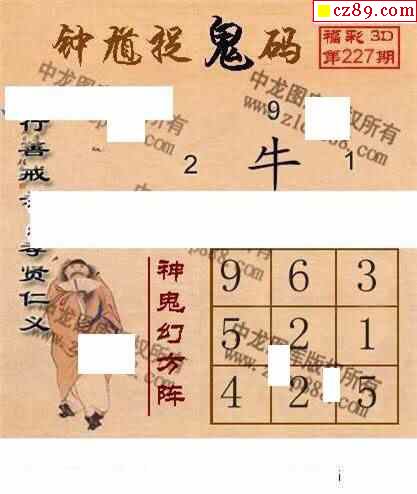 cz89.com
钟馗捉鬼码
福彩3D
第227期
中龙图库版权所有
9
2
牛
1
行善戒
孝贤仁义
神鬼幻方阵
9 6 3
5 2 1
4 2 5
中龙图库版权所有
中龙图库版权所有
i